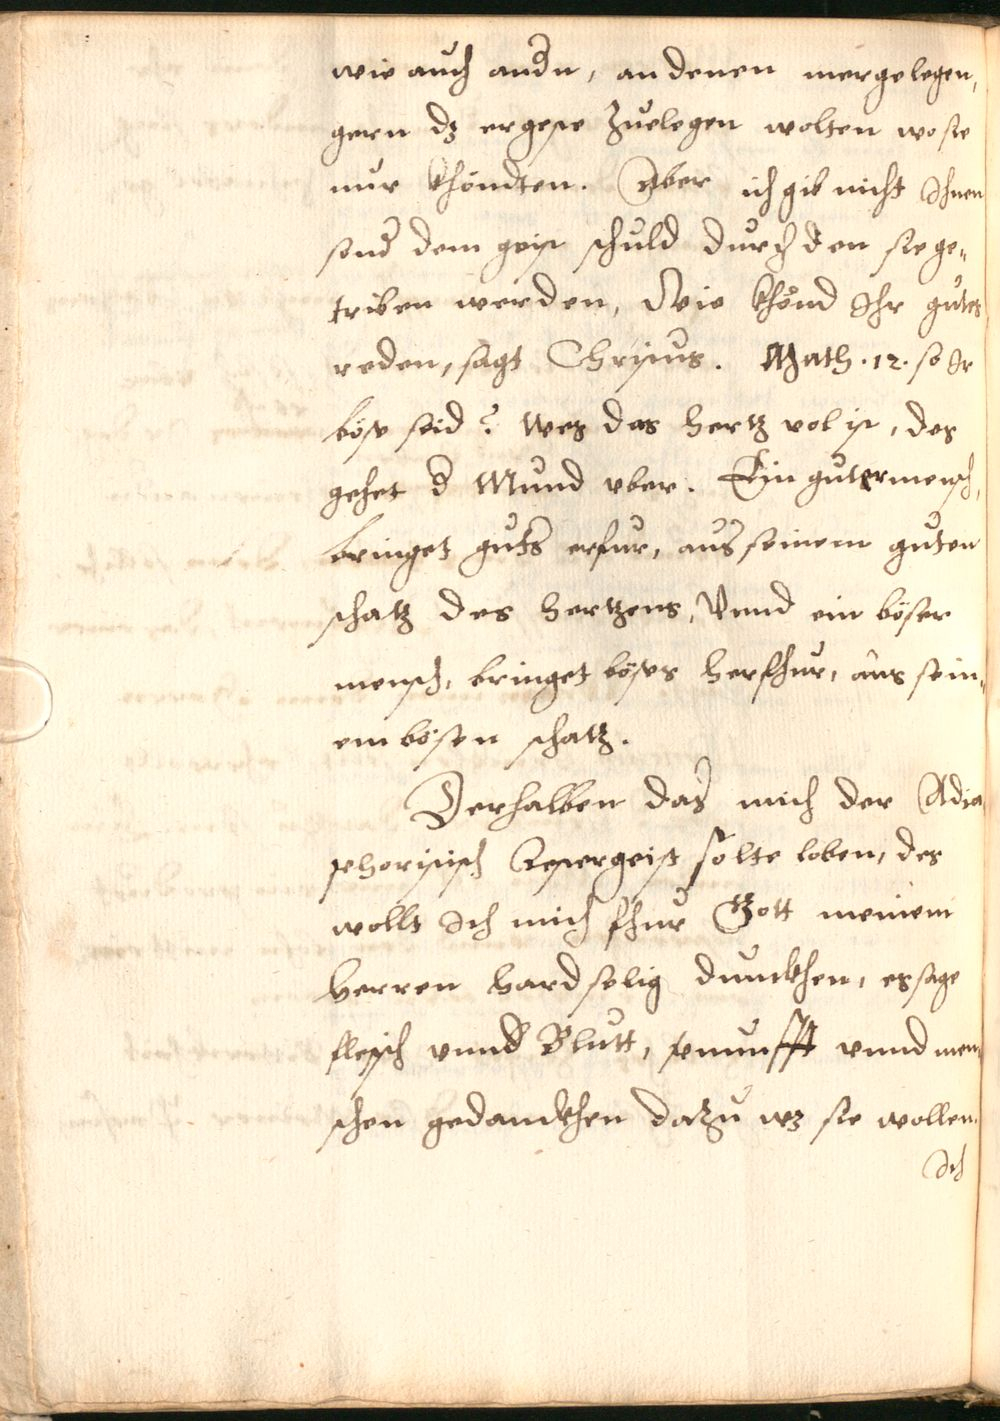 wie auch andn, an denen mer gelegen,
gern dz ergeste zuelegen wolten wo sie
nur khöndten. Aber ich gib nicht Ihnen
sond dem geist schuld durch den sie ge-
triben werden, Wie khönd Ihr gutes
reden, sagt Christus. Math. 12. so Ir
böse seid? Wes das hertz vol ist, des
gehet d Mund vber. Ein guter mensch,
bringet guts erfur, aus seinem guten
schatz des hertzens, Vnnd ein böser
mensch, bringet böses herfhur, aus sein-
em bösen schatz.
Derhalben das mich der Adia
phoristisch Lestergeist solte loben, des
wollt Ich mich fhur Gott meinem
herren hardselig dunckhen, es sage
fleisch vnnd Blutt, vnunfft vnnd men-
schen gedanckhen dazu wz sie wollen.
Ich